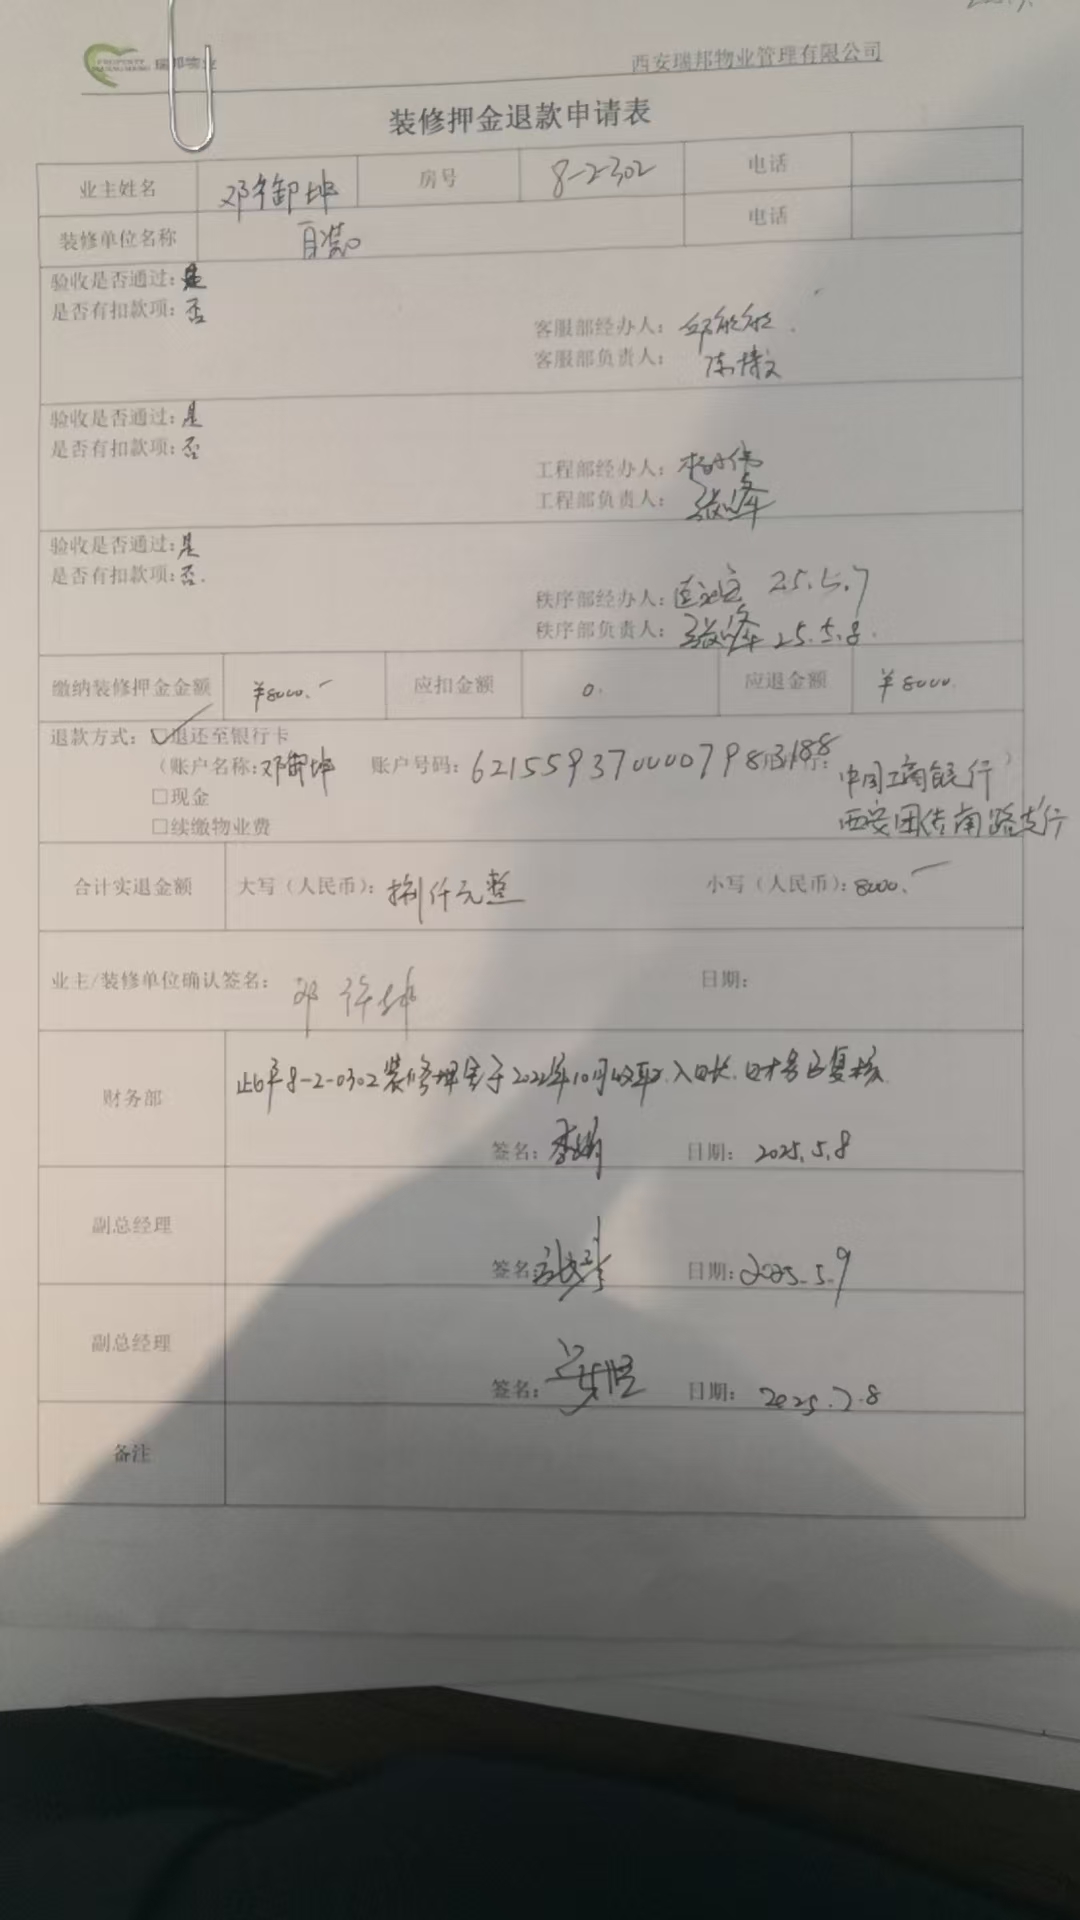 PROPERTY
瑞邦物业
西安瑞邦物业管理有限公司
装修押金退款申请表
业主姓名 邓御坤 房号 8-2-302 电话
装修单位名称 自装 电话
验收是否通过：是
是否有扣款项：否
客服部经办人：
客服部负责人：陈博文
验收是否通过：是
是否有扣款项：否
工程部经办人：
工程部负责人：张峰
验收是否通过：是
是否有扣款项：否.
秩序部经办人： 25.5.7
秩序部负责人：张峰 25.5.8.
缴纳装修押金金额 ¥8000.- 应扣金额 0. 应退金额 ¥8000.
退款方式：☑退还至银行卡
（账户名称：邓御坤 账户号码：6215593700007983188 中国工商银行）
□现金 西安团结南路支行
□续缴物业费
合计实退金额 大写（人民币）：捌仟元整 小写（人民币）：8000.-
业主/装修单位确认签名：邓御坤 日期：
财务部 此户8-2-0302装修押金于2022年10月收取.入日账.财务已复核.
签名：李娟 日期：2025.5.8
副总经理
签名： 日期：2025.5.9
副总经理
签名： 日期：2025.7.8
备注